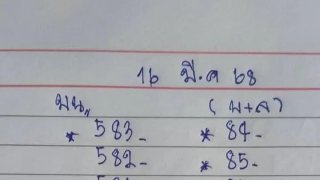 16 มี.ค 68
บน,, (บ+ล)
* 583- * 84-
582- * 85-